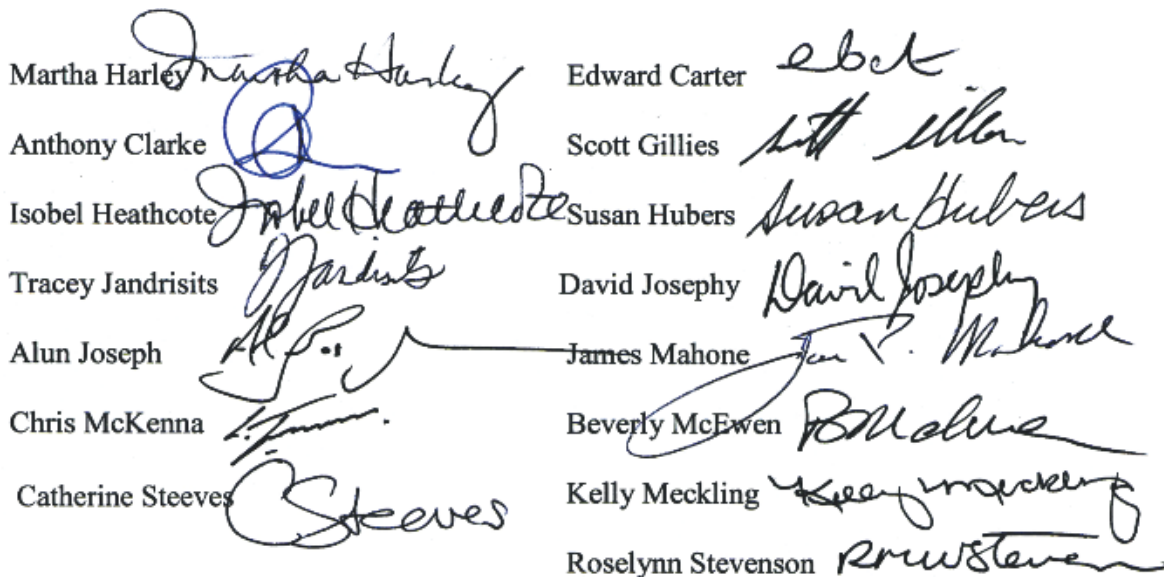 Martha Harley Martha Harley
Anthony Clarke
Isobel Heathcote Isobel Heathcote
Tracey Jandrisits TJandrisits
Alun Joseph
Chris McKenna
Catherine Steeves CSteeves
Edward Carter
Scott Gillies
Susan Hubers Susan Hubers
David Josephy David Josephy
James Mahone P. Mahone
Beverly McEwen
Kelly Meckling Kelly Meckling
Roselynn Stevenson